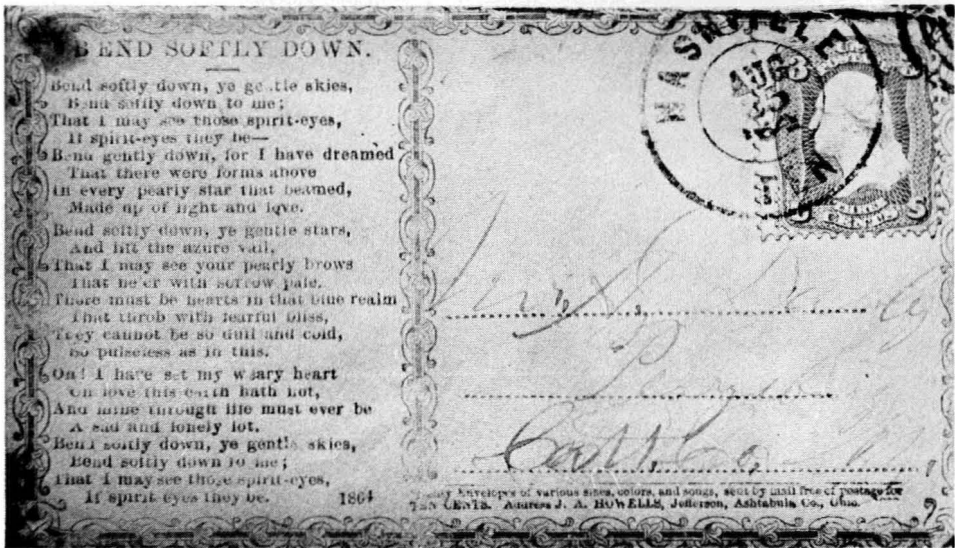 BEND SOFTLY DOWN.
Bend softly down, ye gentle skies,
Bend softly down to me;
That I may see those spirit-eyes,
If spirit-eyes they be—
Bend gently down, for I have dreamed
That there were forms above
In every pearly star that beamed,
Made up of light and love.
Bend softly down, ye gentle stars,
And lift the azure vail,
That I may see your pearly brows
That ne'er with sorrow pale.
There must be hearts in that blue realm
That throb with fearful bliss,
They cannot be so dull and cold,
So pulseless as in this.
Oh! I have set my weary heart
On love this earth hath not,
And mine through life must ever be
A sad and lonely lot.
Bend softly down, ye gentle skies,
Bend softly down to me;
That I may see those spirit-eyes,
If spirit eyes they be. 1864
NASHVILLE
AUG
3
Catt. Co.
Envelopes of various sizes, colors, and songs, sent by mail free of postage for
TEN CENTS. Address J. A. HOWELLS, Jefferson, Ashtabula Co., Ohio.